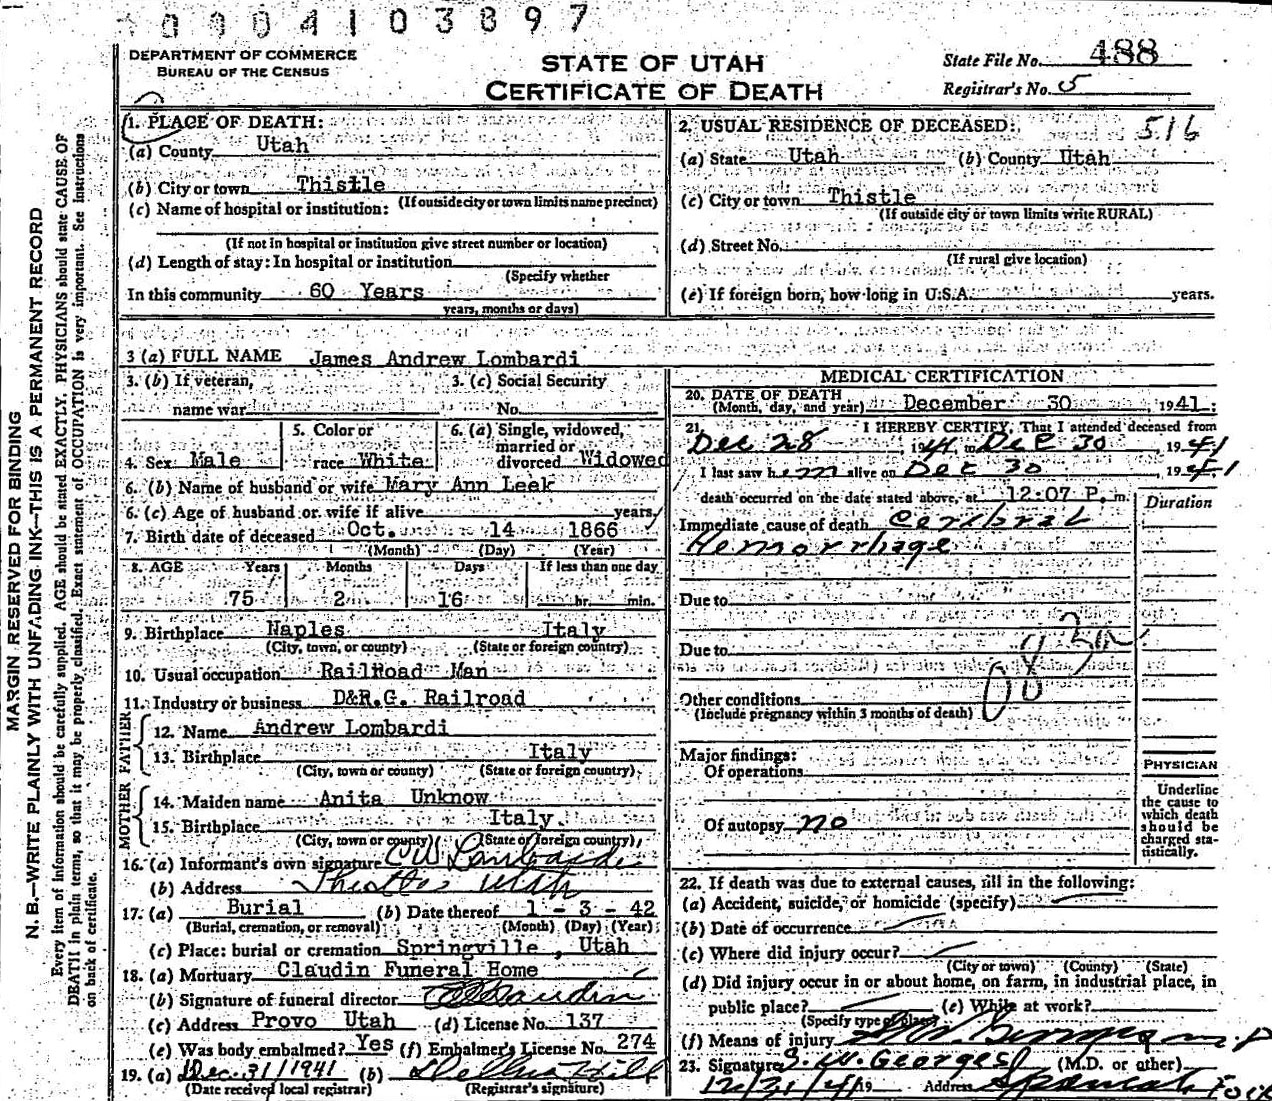 0 0 0 4 1 0 3 8 9 7
DEPARTMENT OF COMMERCE
BUREAU OF THE CENSUS
STATE OF UTAH
CERTIFICATE OF DEATH
State File No. 488
Registrar's No. 5
1. PLACE OF DEATH:
(a) County Utah
(b) City or town Thistle
(If outside city or town limits name precinct)
(c) Name of hospital or institution:
(If not in hospital or institution give street number or location)
(d) Length of stay: In hospital or institution
(Specify whether
In this community 60 Years
years, months or days)
2. USUAL RESIDENCE OF DECEASED: 516
(a) State Utah (b) County Utah
(c) City or town Thistle
(If outside city or town limits write RURAL)
(d) Street No.
(If rural give location)
(e) If foreign born, how long in U.S.A. years.
3 (a) FULL NAME James Andrew Lombardi
3. (b) If veteran, 3. (c) Social Security
name war No.
4. Sex Male
5. Color or
race White
6. (a) Single, widowed,
married or
divorced Widowed
6. (b) Name of husband or wife Mary Ann Leek
6. (c) Age of husband or wife if alive years
7. Birth date of deceased Oct. 14 1866
(Month) (Day) (Year)
8. AGE Years Months Days If less than one day
75 2 16 hr. min.
9. Birthplace Naples Italy
(City, town, or county) (State or foreign country)
10. Usual occupation RailRoad Man
11. Industry or business D&R.G. Railroad
FATHER
12. Name Andrew Lombardi
13. Birthplace Italy
(City, town or county) (State or foreign country)
MOTHER
14. Maiden name Anita Unknow
15. Birthplace Italy
(City, town or county) (State or foreign country)
16. (a) Informant's own signature C W Lombardi
(b) Address Thistle Utah
17. (a) Burial (b) Date thereof 1 - 3 - 42
(Burial, cremation, or removal) (Month) (Day) (Year)
(c) Place: burial or cremation Springville, Utah
18. (a) Mortuary Claudin Funeral Home
(b) Signature of funeral director Claudin
(c) Address Provo Utah (d) License No. 137
(e) Was body embalmed? Yes (f) Embalmer's License No. 274
19. (a) Dec. 31/1941 (b) Hill
(Date received local registrar) (Registrar's signature)
MEDICAL CERTIFICATION
20. DATE OF DEATH
(Month, day, and year) December 30, 1941:
21. I HEREBY CERTIFY, That I attended deceased from
Dec 28, 1941 to Dec 30, 1941
I last saw him alive on Dec 30, 1941
death occurred on the date stated above, at 12:07 P. m.
Duration
Immediate cause of death Cerebral
Hemorrhage
Due to
Due to
Other conditions
(Include pregnancy within 3 months of death)
Major findings:
Of operations
Of autopsy no
PHYSICIAN
Underline
the cause to
which death
should be
charged sta-
tistically.
22. If death was due to external causes, fill in the following:
(a) Accident, suicide, or homicide (specify)
(b) Date of occurrence
(c) Where did injury occur?
(City or town) (County) (State)
(d) Did injury occur in or about home, on farm, in industrial place, in
public place? (e) While at work?
(Specify type of place)
(f) Means of injury
23. Signature S. W. Georges (M.D. or other)
12/31/41 19 Address Spanish Fork
MARGIN RESERVED FOR BINDING
N. B.—WRITE PLAINLY WITH UNFADING INK—THIS IS A PERMANENT RECORD
Every item of information should be carefully supplied. AGE should be stated EXACTLY. PHYSICIANS should state CAUSE OF
DEATH in plain terms, so that it may be properly classified. Exact statement of OCCUPATION is very important. See instructions
on back of certificate.